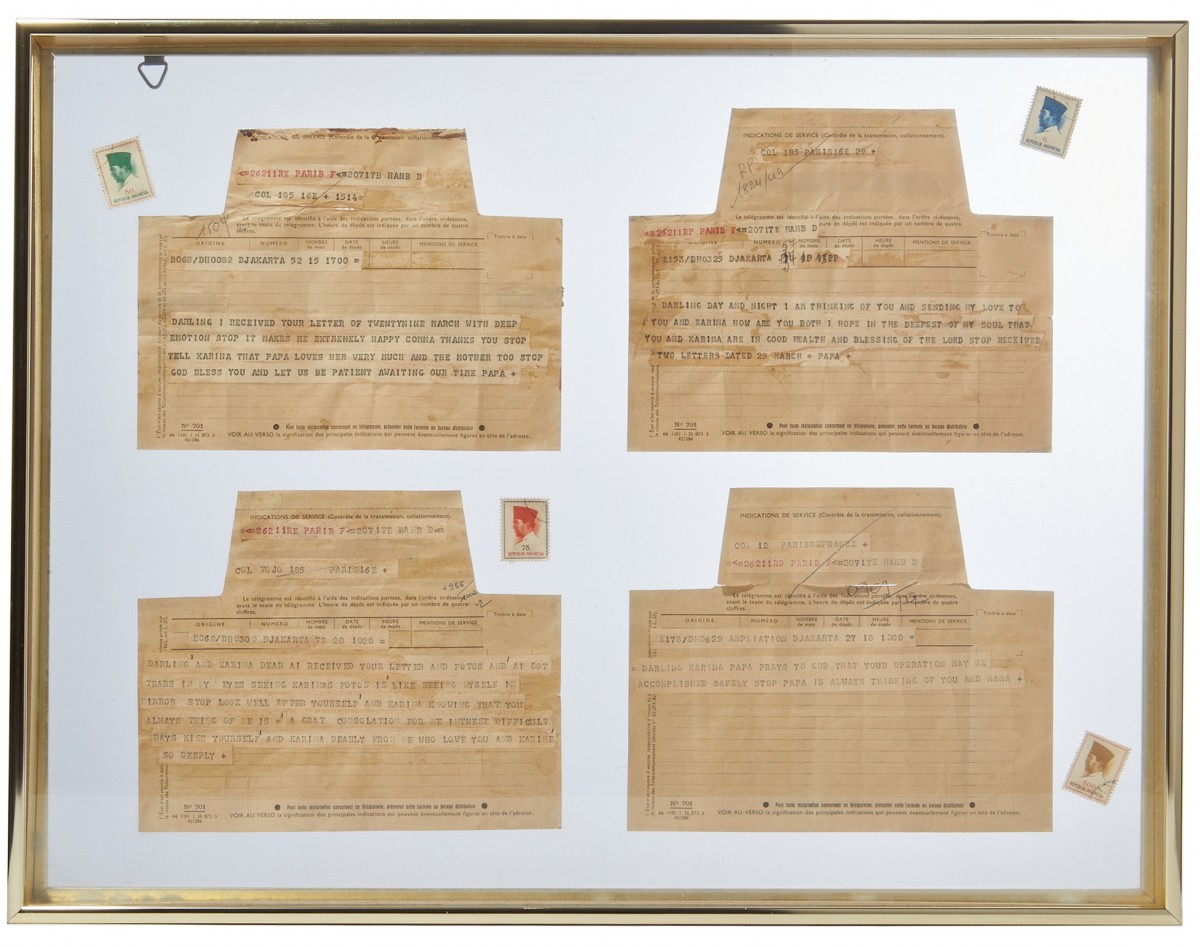 INDICATIONS DE SERVICE (Contrôle de la transmission, collationnement).
<=26211RX PARIB F<=2071YB HAMB D
COL 185 16E + 1514o
1504
Le télégramme est identifié à l'aide des indications portées, dans l'ordre ci-dessous,
avant le texte du télégramme. L'heure de dépôt est indiquée par un nombre de quatre
chiffres.
Timbre à date
ORIGINE NUMÉRO NOMBRE de mots DATE de dépôt HEURE de dépôt MENTIONS DE SERVICE
B068/DH0082 DJAKARTA 52 15 1700 =
DARLING I RECEIVED YOUR LETTER OF TWENTYNINE MARCH WITH DEEP
EMOTION STOP IT MAKES ME EXTREMELY HAPPY COMMA THANKS YOU STOP
TELL KARINA THAT PAPA LOVES HER VERY MUCH AND THE MOTHER TOO STOP
GOD BLESS YOU AND LET US BE PATIENT AWAITING OUR TIME PAPA +
Nº 701
Pour toute réclamation concernant ce télégramme, présenter cette formule au bureau distributeur
VOIR AU VERSO la signification des principales indications qui peuvent éventuellement figurer en tête de l'adresse.
50
REPUBLIK INDONESIA
INDICATIONS DE SERVICE (Contrôle de la transmission, collationnement).
COL 185 PARIS16E 29 +
RP
1824/49
Le télégramme est identifié à l'aide des indications portées, dans l'ordre ci-dessous,
avant le texte du télégramme. L'heure de dépôt est indiquée par un nombre de quatre
<=26211RP PARIB F<=2071TE HAMB D
Timbre à date
NUMÉRO NOMBRE de mots DATE de dépôt HEURE de dépôt MENTIONS DE SERVICE
E153/DH0325 DJAKARTA
DARLING DAY AND NIGHT I AM THINKING OF YOU AND SENDING MY LOVE TO
YOU AND KARINA HOW ARE YOU BOTH I HOPE IN THE DEEPEST OF MY SOUL THAT
YOU AND KARINA ARE IN GOOD HEALTH AND BLESSING OF THE LORD STOP RECEIVED
TWO LETTERS DATED 29 MARCH = PAPA +
Nº 701
Pour toute réclamation concernant ce télégramme, présenter cette formule au bureau distributeur
VOIR AU VERSO la signification des principales indications qui peuvent éventuellement figurer en tête de l'adresse.
6
REPUBLIK INDONESIA
INDICATIONS DE SERVICE (Contrôle de la transmission, collationnement).
<=26211RE PARIB F<=2071TE HAMB D<=
COL TOJO 185 PARIS16E +
Le télégramme est identifié à l'aide des indications portées, dans l'ordre ci-dessous,
avant le texte du télégramme. L'heure de dépôt est indiquée par un nombre de quatre
chiffres.
Timbre à date
ORIGINE NUMÉRO NOMBRE de mots DATE de dépôt HEURE de dépôt MENTIONS DE SERVICE
E068/DH0300 DJAKARTA 72 20 1020 =
DARLING AND KARINA DEAR AI RECEIVED YOUR LETTER AND FOTOS AND AI GOT
TEARS IN MY EYES SEEING KARINAS FOTOS IS LIKE SEEING MYSELF IN
MIRROR STOP LOOK WELL AFTER YOURSELF AND KARINA KNOWING THAT YOU
ALWAYS THING OF ME IS = A GRAT CONSOLATION FOR ME INTHESE DIFFICULY
DAYS KISS YOURSELF AND KARINA DEARLY FROM ME WHO LOVE YOU AND KARINE
SO DEEPLY +
Nº 701
Pour toute réclamation concernant ce télégramme, présenter cette formule au bureau distributeur
VOIR AU VERSO la signification des principales indications qui peuvent éventuellement figurer en tête de l'adresse.
75
REPUBLIK INDONESIA
INDICATIONS DE SERVICE (Contrôle de la transmission, collationnement).
COL 12 PARISSEFRANCE +
<=26211RD PARIB F<=2071TE HAMB D
Le télégramme est identifié à l'aide des indications portées, dans l'ordre ci-dessous,
avant le texte du télégramme. L'heure de dépôt est indiquée par un nombre de quatre
chiffres.
Timbre à date
ORIGINE NUMÉRO NOMBRE de mots DATE de dépôt HEURE de dépôt MENTIONS DE SERVICE
E178/DH0629 AMPLIATION DJAKARTA 27 18 1300 =
= DARLING KARINA PAPA PRAYS TO GOD THAT YOUR OPERATION MAY BE
ACCOMPLISHED SAFELY STOP PAPA IS ALWAYS THINKING OF YOU AND MAMA +
Nº 701
Pour toute réclamation concernant ce télégramme, présenter cette formule au bureau distributeur
VOIR AU VERSO la signification des principales indications qui peuvent éventuellement figurer en tête de l'adresse.
REPUBLIK INDONESIA